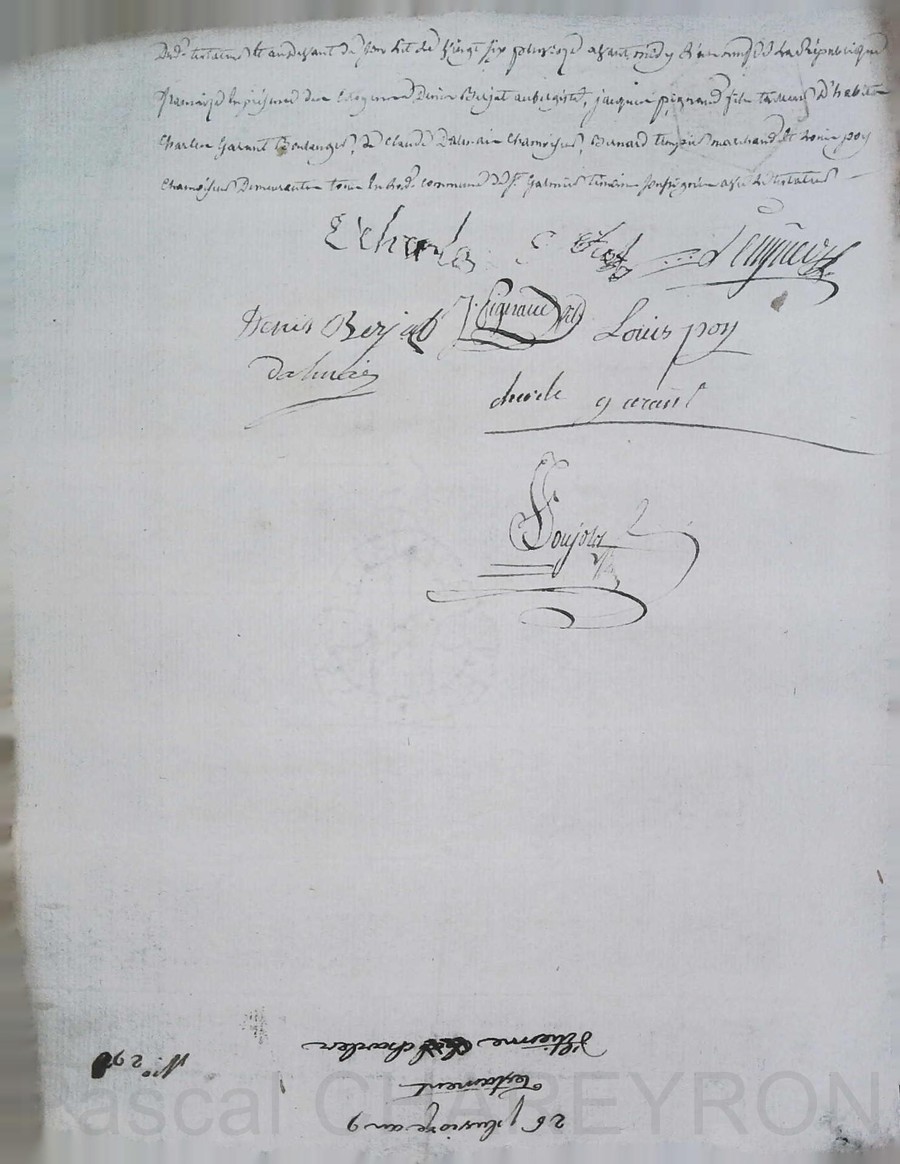 Dud. testateur et au devant de son lit le vingt six pluviose avant midy l'an neuf de la République
françoise En présence des Citoyens Denis Berjat aubergiste, jacques pignaud fils tailleur d'habits
Charles Garant Boulanger, Claude Dalmais Chamoiseur, Bernard marchand et Louis poy
Chamoiseur Demeurants tous En lad. commune de St. Galmier témoins soussignés avec le testateur
E charles
Denis Berjat J. Pignaud fils Louis poy
dalmais
charle garant
Poujols
26 pluvioze an 9
Testament
Etienne charles
N.o 29
Pascal CHAREYRON